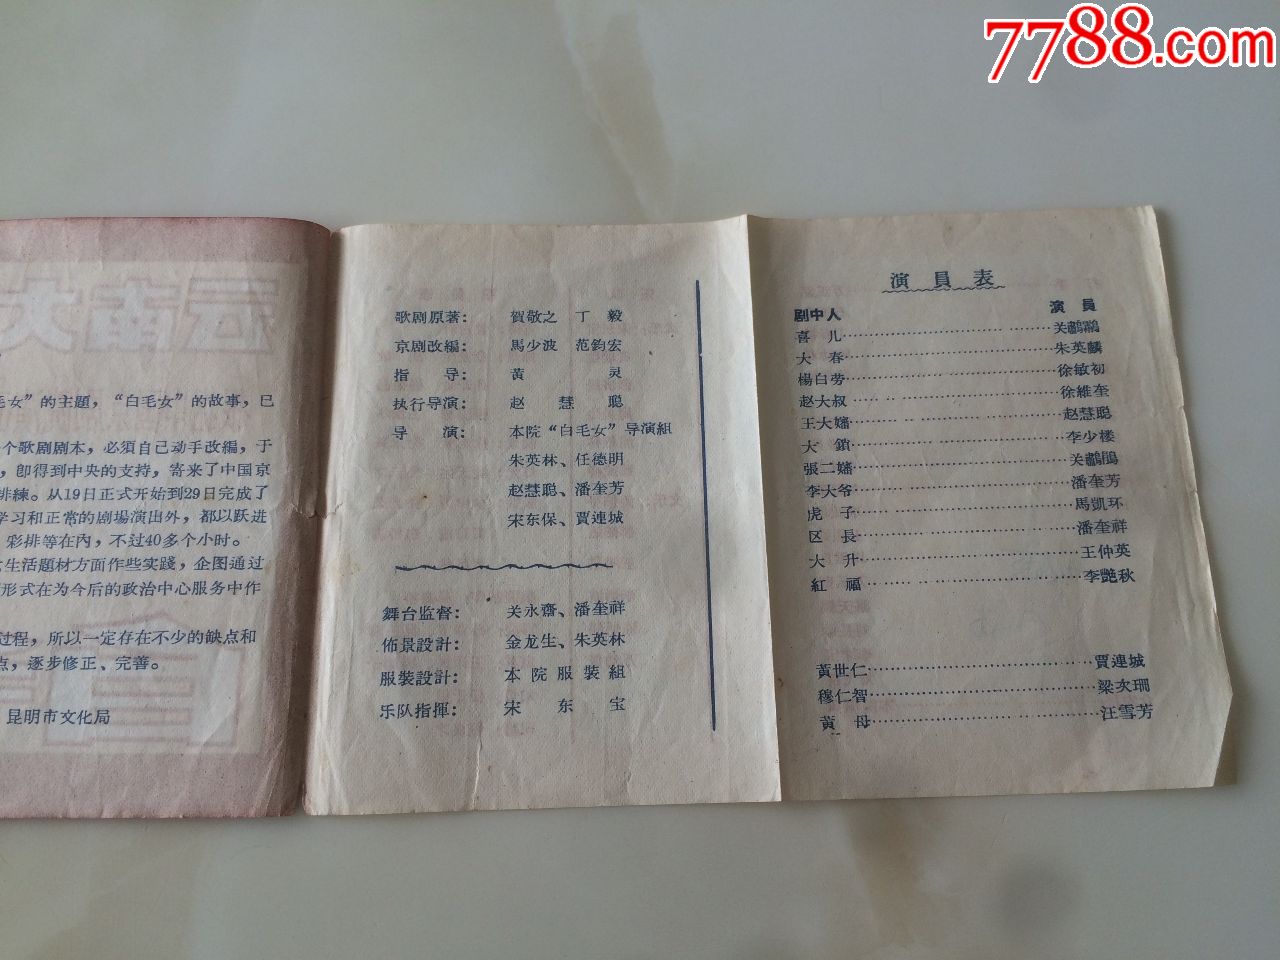 7788.com
云南大
毛女”的主題，“白毛女”的故事，已
个歌剧剧本，必須自己动手改編，于
，卽得到中央的支持，寄来了中国京
排練。从19日正式开始到29日完成了
学习和正常的剧場演出外，都以跃进
彩排等在內，不过40多个小时。
生活題材方面作些实踐，企图通过
形式在为今后的政治中心服务中作
过程，所以一定存在不少的缺点和
点，逐步修正、完善。
昆明市文化局
歌剧原著：賀敬之 丁毅
京剧改編：馬少波 范鈞宏
指导：黄灵
执行导演：赵慧聪
导演：本院“白毛女”导演組
朱英林、任德明
赵慧聪、潘奎芳
宋东保、賈連城
舞台监督：关永齋、潘奎祥
佈景設計：金龙生、朱英林
服裝設計：本院服裝組
乐队指揮：宋东宝
演員表
剧中人 演員
喜儿 关鷫鸘
大春 朱英麟
楊白劳 徐敏初
赵大叔 徐維奎
王大嬸 赵慧聪
大鎖 李少楼
張二嬸 关鷫鵑
李大爷 潘奎芳
虎子 馬凱环
区長 潘奎祥
大升 王仲英
紅福 李艷秋
黃世仁 賈連城
穆仁智 梁次珊
黃母 汪雪芳